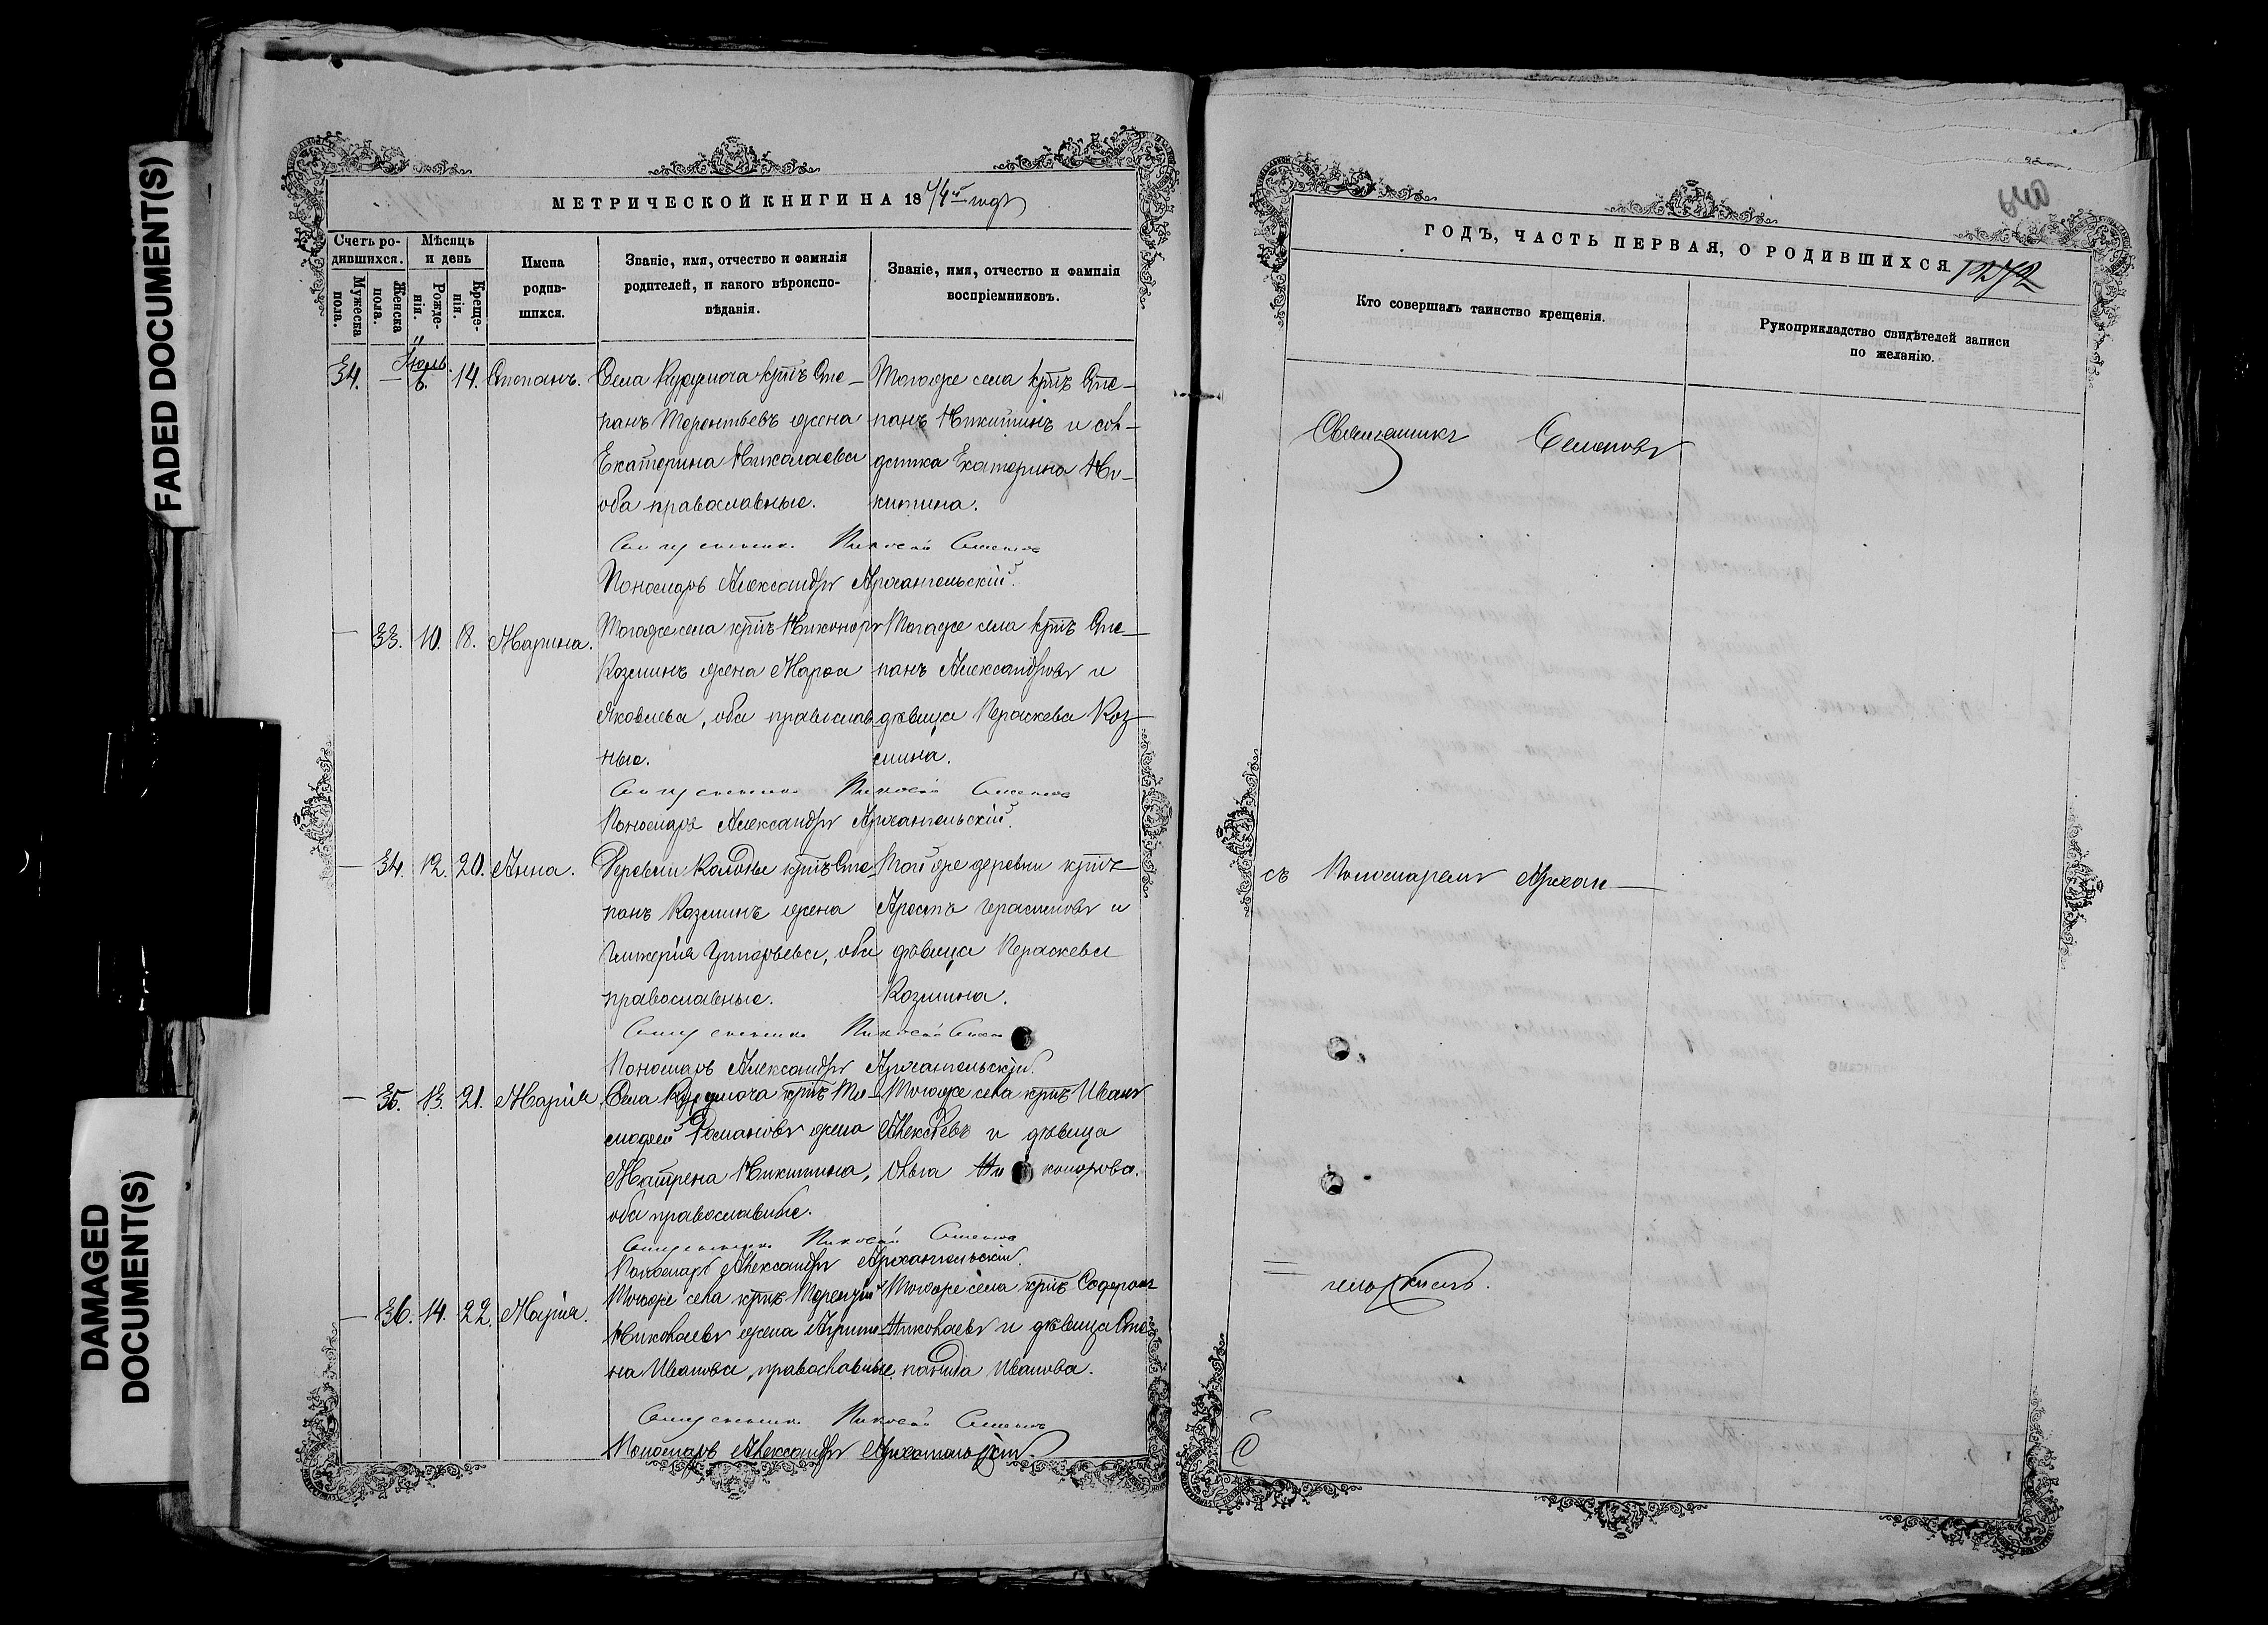 FADED DOCUMENT(S)
DAMAGED
DOCUMENT(S)
МЕТРИЧЕСКОЙ КНИГИ НА 1874й годъ
Счетъ ро-
дившихся.
Мужеска
пола.
Женска
пола.
Мѣсяцъ
и день
Рожде-
нія.
Креще-
нія.
Имена
родив-
шихся.
Званіе, имя, отчество и фамилія
родителей, и какого вѣроиспо-
вѣданія.
Званіе, имя, отчество и фамилія
воспріемниковъ.
34. — Іюль 14. Степанъ.
Села крнъ Сте-
панъ Терентьевъ жена
Екатерина Николаева
оба православные.
Тогоже села крнъ Сте-
панъ Никитинъ и
Екатерина Ни-
китина.
Священникъ Николай Семеновъ
Пономарь Александръ Архангельскій.
— 33. 10. 18. Марина.
Тогоже села крнъ Никоноръ
Козминъ жена Марѳа
Яковлева, оба православ-
ные.
Тогоже села крнъ Сте-
панъ Александровъ и
дѣвица Параскева Коз-
мина.
Священникъ Николай Семеновъ
Пономарь Александръ Архангельскій.
— 34. 12. 20. Анна.
Деревни крнъ Сте-
панъ Козминъ жена
Гликерія Григорьева, оба
православные.
Тойже деревни крнъ
Герасимовъ и
дѣвица Параскева
Козмина.
Священникъ Николай
Пономарь Александръ Архангельскій.
— 35. 13. 21. Марія
Села крнъ Ти-
моѳей Романовъ жена
Матрена Никитина,
оба православные.
Тогоже села крнъ Иванъ
Алексѣевъ и дѣвица
Ольга Никонорова.
Священникъ Николай Семеновъ
Пономарь Александръ Архангельскій.
— 36. 14. 22. Марія.
Тогоже села крнъ Терентій
Николаевъ жена Агрипи-
на Иванова, православные.
Тогоже села крнъ
Николаевъ и дѣвица Сте-
панида Иванова.
Священникъ Николай Семеновъ
Пономарь Александръ Архангельскій
640
ГОДЪ, ЧАСТЬ ПЕРВАЯ, О РОДИВШИХСЯ.
1272
Кто совершалъ таинство крещенія.
Рукоприкладство свидѣтелей записи
по желанію.
Священникъ Семеновъ
съ Пономаремъ Архан-
гельскимъ.